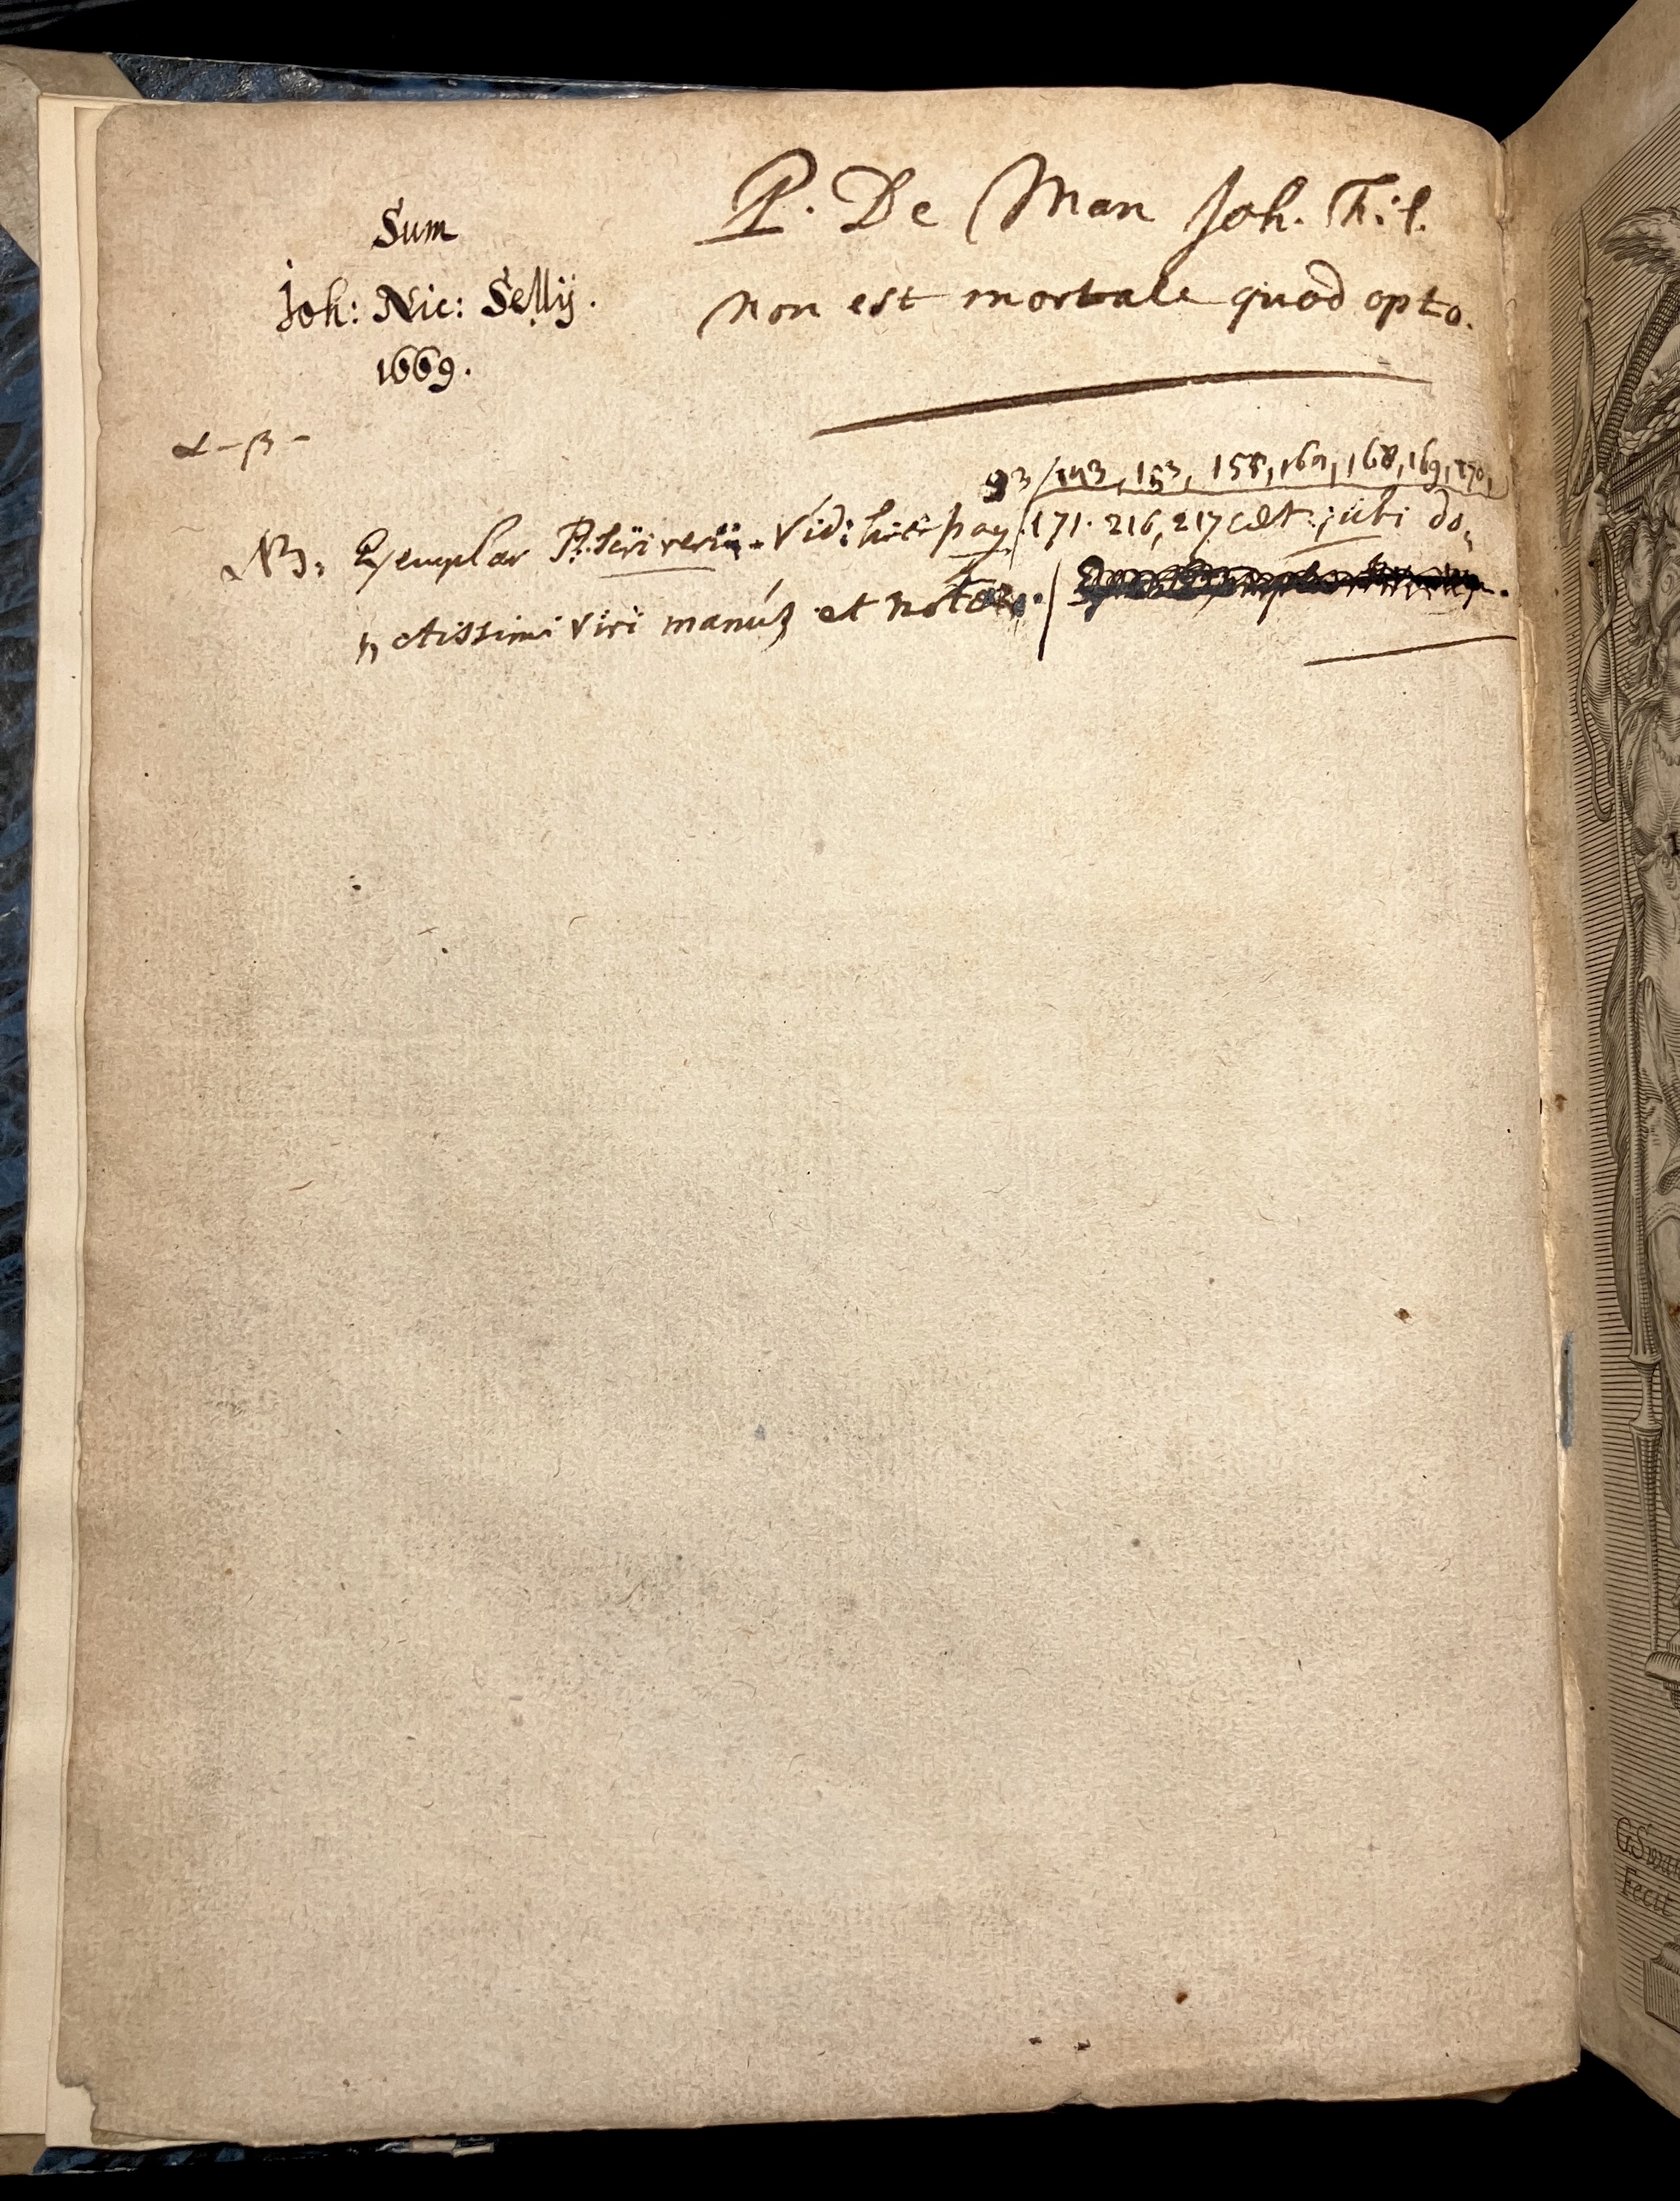 Sum
Joh: Nic: Sellij.
1669.
P. De Man Joh. Fil.
non est mortale quod opto.
α-β-
93/143, 153, 158, 168, 169, 170,
NB: Exemplar P. Scriverii. Vid: hic pag. 171. 216, 217 cæt.; ubi do,
,, ctissimi viri manús et notæ.
GSwa
Fecit